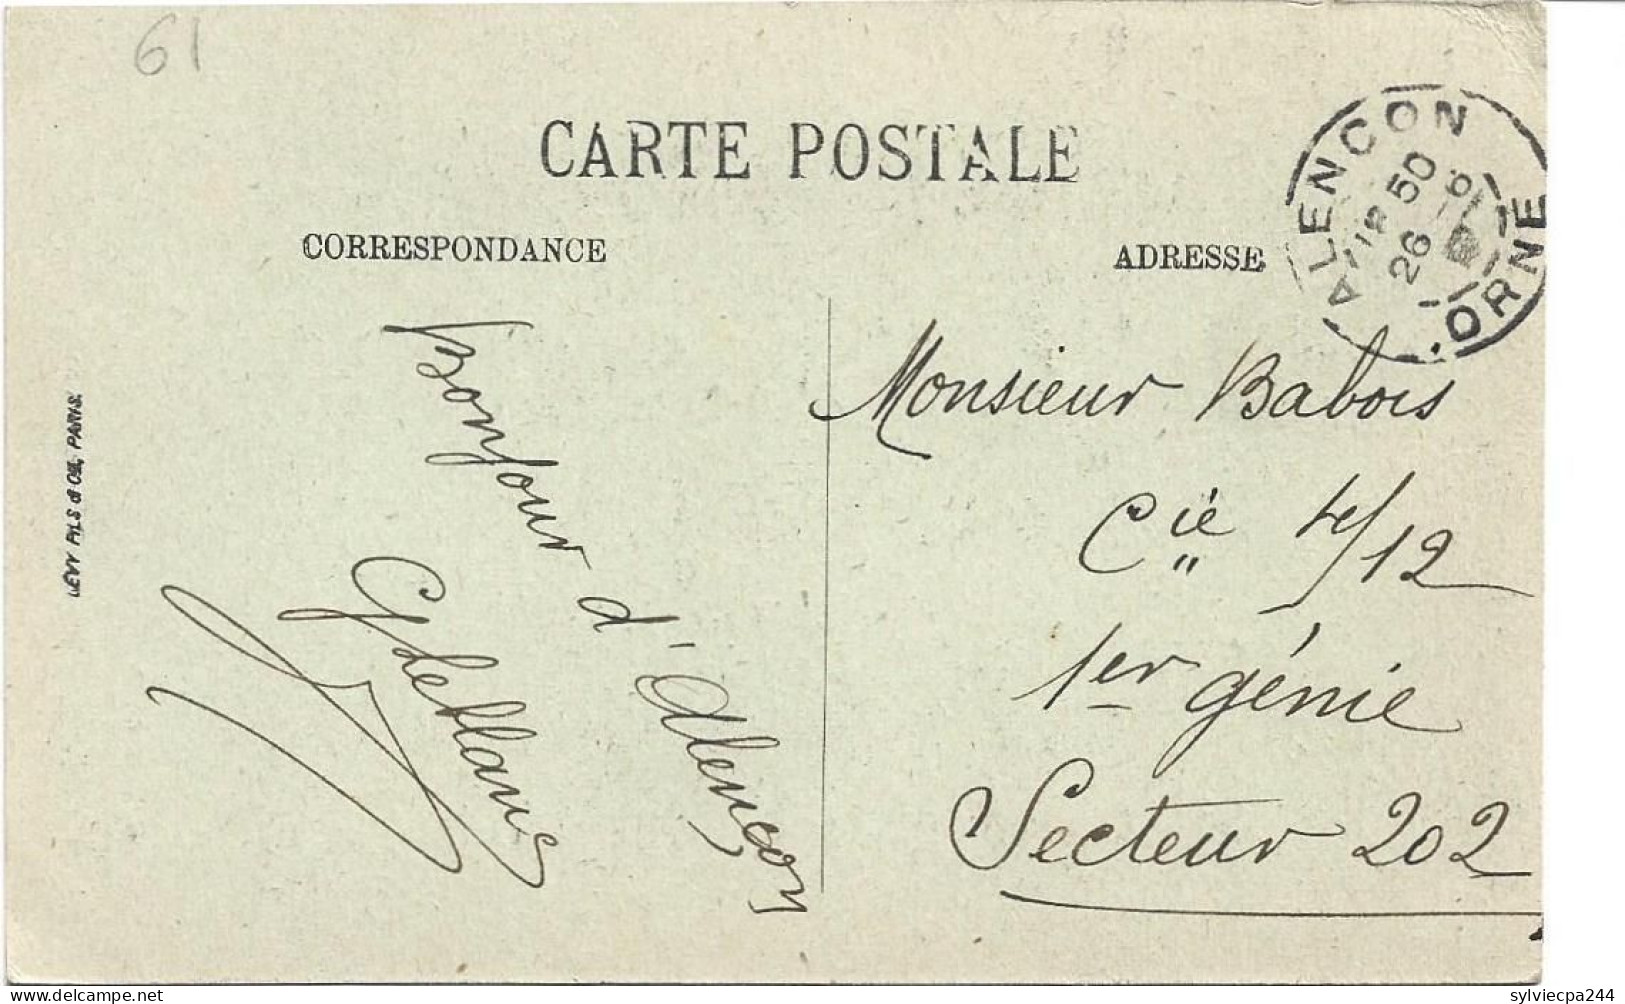 61
CARTE POSTALE
CORRESPONDANCE
ADRESSE
ALENCON
50
26
ORNE
LEVY FILS & Cie, PARIS.
Bonjour d'Alençon
GLeblanc
Monsieur Babois
Cie 4/12
1er génie
Secteur 202
sylviecpa244